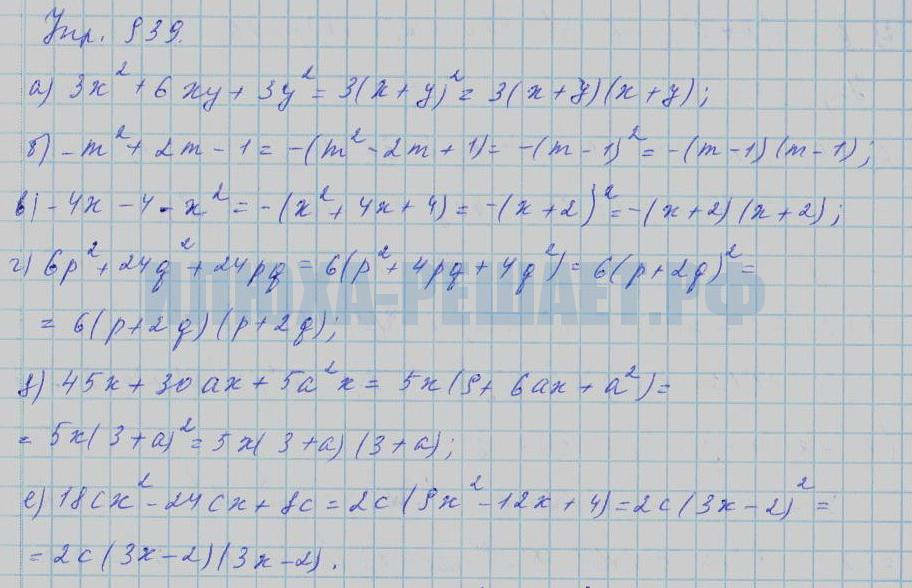 Упр. 939.
а) 3x² + 6xy + 3y² = 3(x + y)² = 3(x + y)(x + y);
б) -m² + 2m - 1 = -(m² - 2m + 1) = -(m - 1)² = -(m - 1)(m - 1);
в) -4x - 4 - x² = -(x² + 4x + 4) = -(x + 2)² = -(x + 2)(x + 2);
г) 6p² + 24q² + 24pq = 6(p² + 4pq + 4q²) = 6(p + 2q)² =
ИЛЮХА-РЕШАЕТ.РФ
= 6(p + 2q)(p + 2q);
д) 45x + 30ax + 5a²x = 5x(9 + 6ax + a²) =
= 5x(3 + a)² = 5x(3 + a)(3 + a);
е) 18cx² - 24cx + 8c = 2c(9x² - 12x + 4) = 2c(3x - 2)² =
= 2c(3x - 2)(3x - 2).